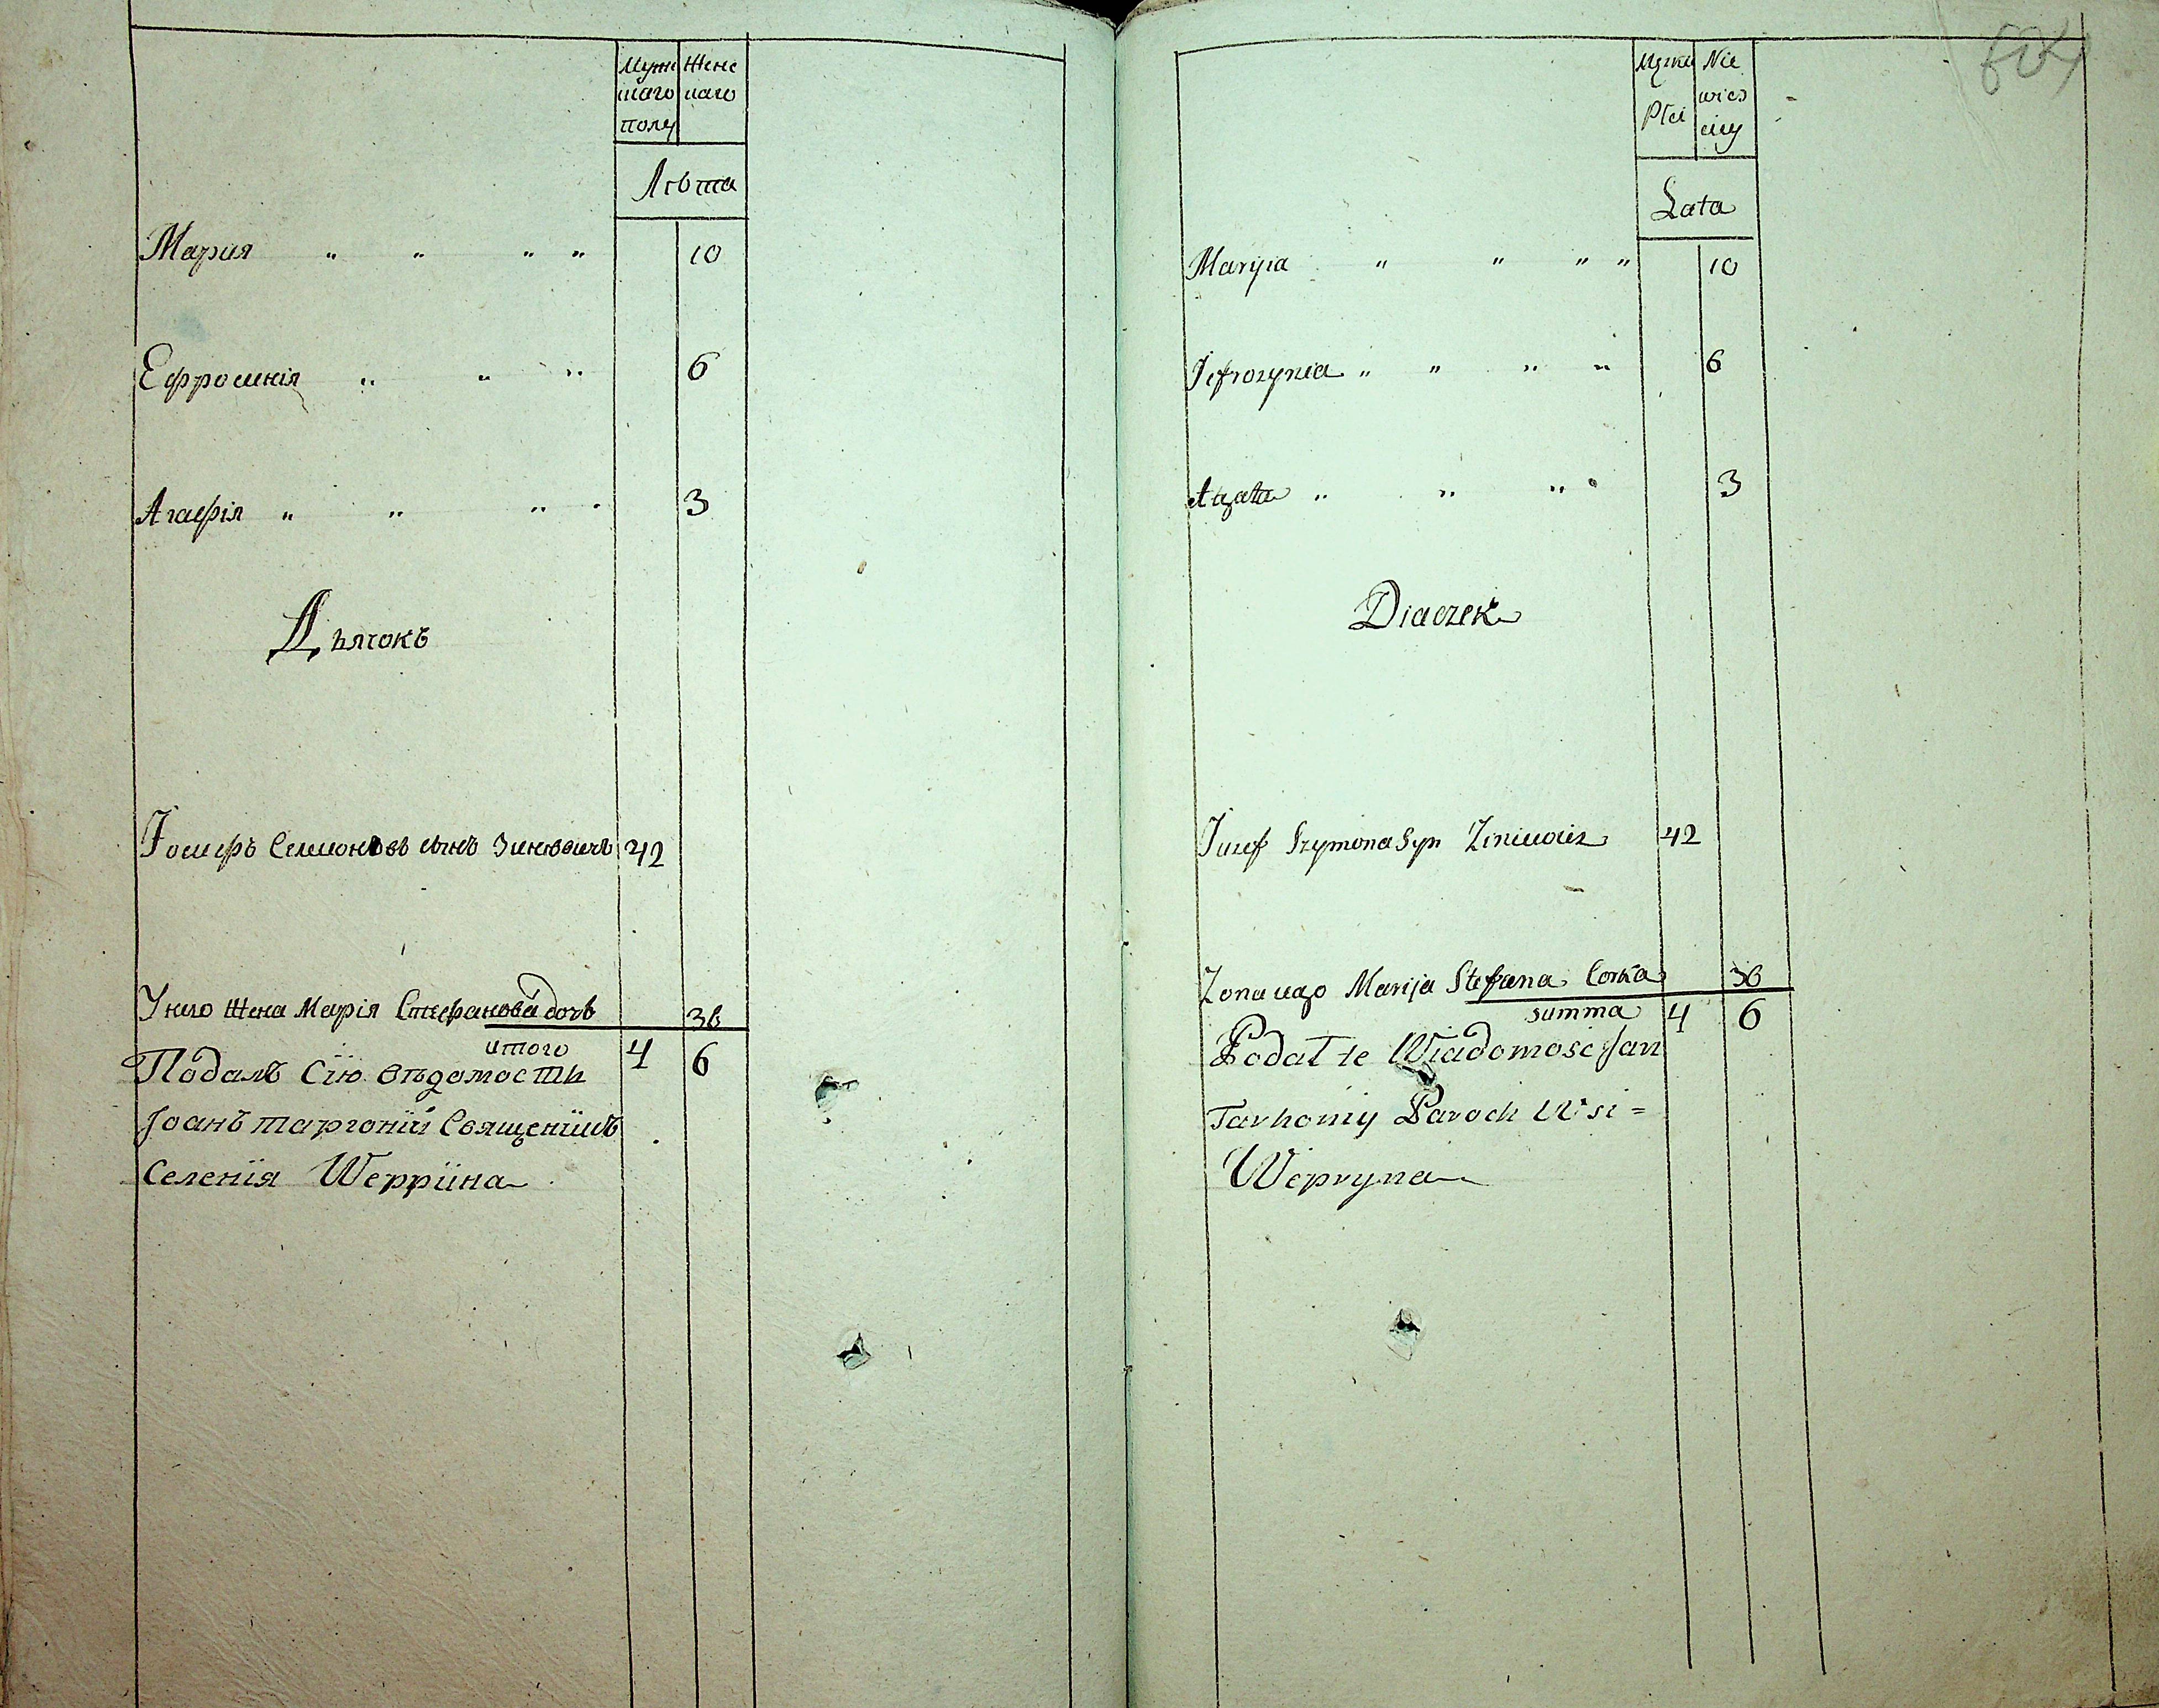 Мужс Женс
каго каго
полу
Лѣта
Мария " " " " 10
Ефросинія " " " 6
Агафія " " " " 3
Дьячокъ
Іосифъ Семионовъ сынъ Зиневичъ 42
У него Жена Марія Стефанова дочь 36
итого 4 6
Подалъ Сїю вѣдомость
Іоанъ Таргонїй Священикъ
Селенїя Wеприна
Męzki Nie
Płci wies
ciey
Lata
Maryia " " " " 10
Jefrozynia " " " " 6
Agata " " " " 3
Diaczek
Juzef Szymona Syn Ziniewicz 42
Zona iego Marija Stefana Corka 36
summa 4 6
Podał te Wiadomosc Jan
Tarhoniy Paroch Wsi =
Wepryna